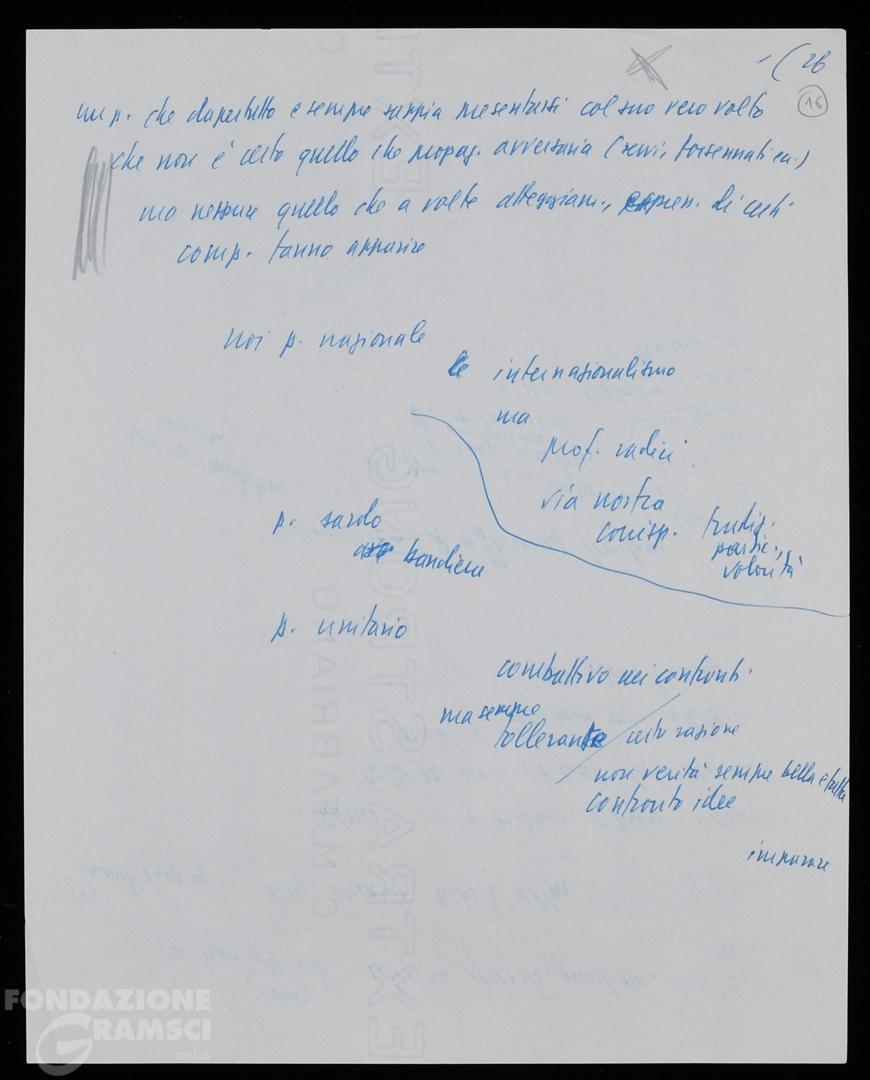 26
16
un p. che dapertutto e sempre sappia presentarsi col suo vero volto
che non è certo quello che propag. avversaria (servi, forsennati ecc.)
ma neppure quello che a volte atteggiam., di certi
comp. fanno apparire
noi p. nazionale
internazionalismo
ma
prof. radici
via nostra
p. sardo
bandiera
corrisp. tradiz.
partic.,
volontà
p. unitario
combattivo nei confronti
ma sempre
tollerante certo ragione
non verità sempre bella e fatta
confronto idee
imparare
EXTRA STRONG
C.M. FABRIANO
FONDAZIONE
GRAMSCI
onlus